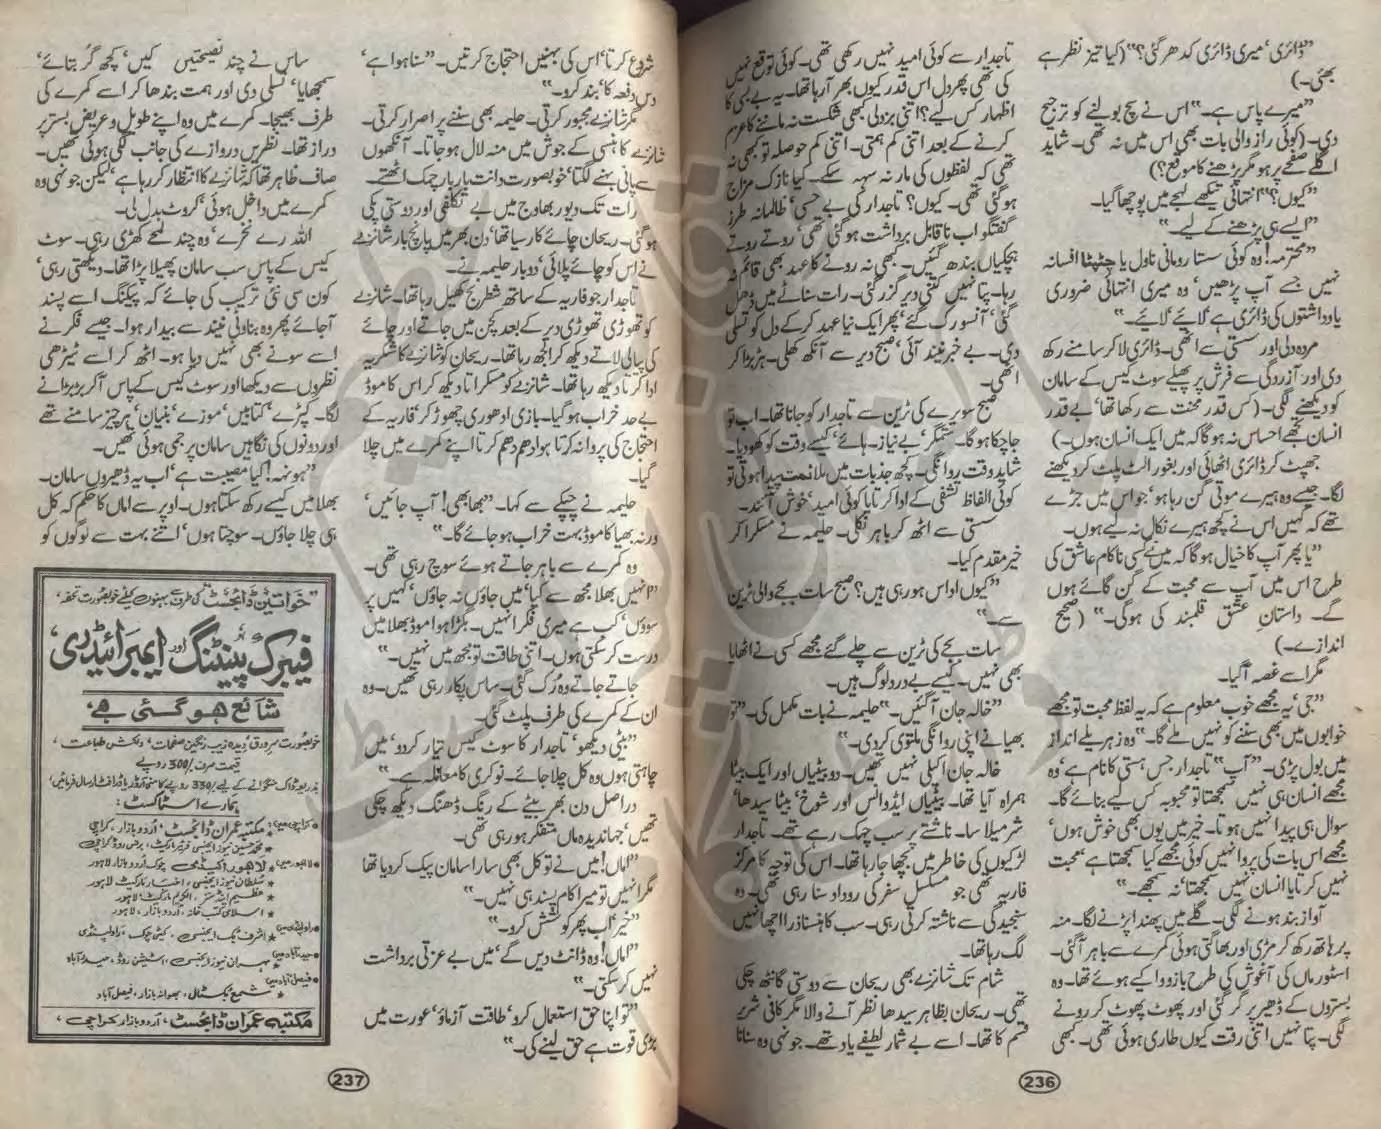 ”ڈائری‘ میری ڈائری کدھر گئی؟“ (کیا تیز نظر ہے
بھئی۔)
”میرے پاس ہے۔“ اس نے سچ بولنے کو ترجیح
دی۔ (کوئی راز والی بات بھی اس میں نہ تھی۔ شاید
اگلے صفحے پر ہو مگر پڑھنے کا موقع؟)
”کیوں؟“ انتہائی تیکھے لہجے میں پوچھا گیا۔
”ایسے ہی پڑھنے کے لیے۔“
”محترمہ! وہ کوئی سستا رومانی ناول یا چٹپٹا افسانہ
نہیں جسے آپ پڑھیں‘ وہ میری انتہائی ضروری
یادداشتوں کی ڈائری ہے‘ لائیے‘ لائیے۔“
مردہ دلی اور سستی سے اٹھی۔ ڈائری لا کر سامنے رکھ
دی اور آزردگی سے فرش پر پھیلے سوٹ کیس کے سامان
کو دیکھنے لگی۔ (کس قدر محنت سے رکھا تھا‘ بے قدر
انسان تجھے احساس نہ ہوگا کہ میں ایک انسان ہوں۔)
جھپٹ کر ڈائری اٹھائی اور بغور الٹ پلٹ کر دیکھنے
لگا۔ جیسے وہ ہیرے موتی گن رہا ہو‘ جو اس میں جڑے
تھے کہ کہیں اس نے کچھ ہیرے نکال نہ لیے ہوں۔
”یا پھر آپ کا خیال ہوگا کہ میں کسی ناکام عاشق کی
طرح اس میں آپ سے محبت کے گن گائے ہوں
گے۔ داستانِ عشق قلمبند کی ہوگی۔“ (صحیح
اندازے۔)
مگر اسے غصہ آگیا۔
”جی‘ یہ مجھے خوب معلوم ہے کہ یہ لفظ محبت تو مجھے
خوابوں میں بھی سننے کو نہیں ملے گا۔“ وہ زہریلے انداز
میں بول پڑی۔ ”آپ“ تاجدار جس ہستی کا نام ہے‘ وہ
مجھے انسان ہی نہیں سمجھتا تو محبوبہ کس لیے بنائے گا۔
سوال ہی پیدا نہیں ہوتا۔ خیر میں یوں بھی خوش ہوں‘
مجھے اس بات کی پروا نہیں کوئی مجھے کیا سمجھتا ہے‘ محبت
نہیں کرتا یا انسان نہیں سمجھتا‘ نہ سمجھے۔“
آواز بند ہونے لگی۔ گلے میں پھندا پڑنے لگا۔ منہ
پر ہاتھ رکھ کر مڑی اور بھاگتی ہوئی کمرے سے باہر آگئی۔
اسٹور ماں کی آغوش کی طرح بازو وا کیے ہوئے تھا۔ وہ
بستروں کے ڈھیر پر گر گئی اور پھوٹ پھوٹ کر رونے
لگی۔ پتا نہیں اتنی رقت کیوں طاری ہوئی تھی۔ کبھی
تاجدار سے کوئی امید نہیں رکھی تھی۔ کوئی توقع نہیں
کی تھی پھر دل اس قدر کیوں بھر آرہا تھا۔ یہ بے بسی کا
اظہار کس لیے؟ اتنی بزدلی کبھی شکست نہ ماننے کا عزم
کرنے کے بعد اتنی کم ہمتی۔ اتنی کم حوصلہ تو کبھی نہ
تھی کہ لفظوں کی مار نہ سہہ سکے۔ کیا نازک مزاج
ہوگئی تھی۔ کیوں؟ تاجدار کی بے حسی‘ ظالمانہ طرز
گفتگو اب ناقابل برداشت ہوگئی تھی‘ روتے روتے
ہچکیاں بندھ گئیں۔ کبھی نہ رونے کا عہد بھی قائم نہ
رہا۔ پتا نہیں کتنی دیر گزر گئی۔ رات سناٹے میں ڈھل
گئی‘ آنسو رک گئے‘ پھر ایک نیا عہد کر کے دل کو تسلی
دی۔ بے خبر نیند آئی‘ صبح دیر سے آنکھ کھلی۔ ہڑبڑا کر
اٹھی۔
صبح سویرے کی ٹرین سے تاجدار کو جانا تھا۔ اب تو
جاچکا ہوگا۔ ستمگر‘ بے نیاز۔ ہائے‘ کیسے وقت کو کھو دیا۔
شاید وقت روانگی۔ کچھ جذبات میں ملائمت پیدا ہوتی تو
کوئی الفاظ تشفی کے ادا کرتا یا کوئی امید‘ خوش آئند۔
سستی سے اٹھ کر باہر نکلی۔ حلیمہ نے مسکرا کر
خیر مقدم کیا۔
”کیوں اداس ہو رہی ہیں؟ صبح سات بجے والی ٹرین
سے۔“
سات بجے کی ٹرین سے چلے گئے مجھے کسی نے اٹھایا
بھی نہیں۔ کیسے بے درد لوگ ہیں۔
”خالہ جان آگئیں۔“ حلیمہ نے بات مکمل کی۔ ”تو
بھیا نے اپنی روانگی ملتوی کردی۔“
خالہ جان اکیلی نہیں تھیں۔ دو بیٹیاں اور ایک بیٹا
ہمراہ آیا تھا۔ بیٹیاں ایڈوانس اور شوخ‘ بیٹا سیدھا‘
شرمیلا سا۔ ناشتے پر سب چہک رہے تھے۔ تاجدار
لڑکیوں کی خاطر میں بچھا جارہا تھا۔ اس کی توجہ کا مرکز
فاریہ تھی جو مسلسل سفر کی روداد سنا رہی تھی۔ وہ
سنجیدگی سے ناشتہ کرتی رہی۔ سب کا ہنسنا ذرا اچھا نہیں
لگ رہا تھا۔
شام تک شانزے بھی ریحان سے دوستی گانٹھ چکی
تھی۔ ریحان بظاہر سیدھا نظر آنے والا مگر کافی شریر
قسم کا تھا۔ اسے بے شمار لطیفے یاد تھے۔ جونہی وہ سنانا
236
شروع کرتا‘ اس کی بہنیں احتجاج کرتیں۔ ”سنا ہوا ہے‘
دس دفعہ کا‘ بند کرو۔“
مگر شانزے مجبور کرتی۔ حلیمہ بھی سننے پر اصرار کرتی۔
شانزے کا ہنسی کے جوش میں منہ لال ہوجاتا۔ آنکھوں
سے پانی بہنے لگتا‘ خوبصورت دانت بار بار چمک اٹھتے۔
رات تک دیور بھاوج میں بے تکلفی اور دوستی پکی
ہوگئی۔ ریحان چائے کا رسیا تھا‘ دن بھر میں پانچ بار شانزے
نے اس کو چائے پلائی‘ دو بار حلیمہ نے۔
تاجدار جو فاریہ کے ساتھ شطرنج کھیل رہا تھا۔ شانزے
کو تھوڑی تھوڑی دیر کے بعد کچن میں جاتے اور چائے
کی پیالی لاتے دیکھ کر الجھ رہا تھا۔ ریحان کو شانزے کا شکریہ
ادا کرتا دیکھ رہا تھا۔ شانزے کو مسکراتا دیکھ کر اس کا موڈ
بے حد خراب ہوگیا۔ بازی ادھوری چھوڑ کر‘ فاریہ کے
احتجاج کی پروا نہ کرتا ہوا دھم دھم کرتا اپنے کمرے میں چلا
گیا۔
حلیمہ نے چپکے سے کہا۔ ”بھابھی! آپ جائیں‘
ورنہ بھیا کا موڈ بہت خراب ہوجائے گا۔“
وہ کمرے سے باہر جاتے ہوئے سوچ رہی تھی۔
”انہیں بھلا مجھ سے کیا‘ میں جاؤں نہ جاؤں‘ کہیں پر
سوؤں‘ کب ہے میری فکر انہیں۔ بگڑا ہوا موڈ بھلا میں
درست کرسکتی ہوں۔ اتنی طاقت تو مجھ میں نہیں۔“
جاتے جاتے وہ رک گئی۔ ساس پکار رہی تھیں۔ وہ
ان کے کمرے کی طرف پلٹ گئی۔
”بیٹی دیکھو‘ تاجدار کا سوٹ کیس تیار کردو‘ میں
چاہتی ہوں وہ کل چلا جائے۔ نوکری کا معاملہ ہے۔“
دراصل دن بھر بیٹے کے رنگ ڈھنگ دیکھ چکی
تھیں‘ جہاندیدہ ماں متفکر ہو رہی تھی۔
”اماں! میں نے تو کل بھی سارا سامان پیک کردیا تھا
مگر انہیں تو میرا کام پسند ہی نہیں۔“
”خیر‘ اب پھر کوشش کرو۔“
”اماں! وہ ڈانٹ دیں گے‘ میں بے عزتی برداشت
نہیں کرسکتی۔“
”تو اپنا حق استعمال کرو‘ طاقت آزماؤ‘ عورت میں
بڑی قوت ہے حق لینے کی۔“
ساس نے چند نصیحتیں کیں‘ کچھ گر بتائے‘
سمجھایا‘ تسلی دی اور ہمت بندھا کر اسے کمرے کی
طرف بھیجا۔ کمرے میں وہ اپنے طویل و عریض بستر پر
دراز تھا۔ نظریں دروازے کی جانب لگی ہوئی تھیں۔
صاف ظاہر تھا کہ شانزے کا انتظار کر رہا ہے‘ لیکن جونہی وہ
کمرے میں داخل ہوئی‘ کروٹ بدل لی۔
اللہ رے نخرے‘ وہ چند لمحے کھڑی رہی۔ سوٹ
کیس کے پاس سب سامان پھیلا پڑا تھا۔ دیکھتی رہی‘
کون سی نئی ترکیب کی جائے کہ پیکنگ اسے پسند
آجائے پھر وہ بناوٹی نیند سے بیدار ہوا۔ جیسے فکر نے
اسے سونے بھی نہیں دیا ہو۔ اٹھ کر اسے ٹیڑھی
نظروں سے دیکھا اور سوٹ کیس کے پاس آکر بڑبڑانے
لگا۔ کپڑے‘ کتابیں‘ موزے‘ بنیان‘ ہر چیز سامنے تھے
اور دونوں کی نگاہیں سامان پر جمی ہوئی تھیں۔
”ہونہہ! کیا مصیبت ہے‘ اب یہ ڈھیروں سامان۔
بھلا میں کیسے رکھ سکتا ہوں۔ اوپر سے اماں کا حکم کہ کل
ہی چلا جاؤں۔ سوچتا ہوں‘ اتنے بہت سے لوگوں کو
”خواتین ڈائجسٹ کی طرف سے بہنوں کیلئے خوبصورت تحفہ‘
فیبرک پینٹنگ اور ایمبرائیڈری‘
شائع ہو گئی ہے‘
خوبصورت سرورق‘ دیدہ زیب رنگین صفحات‘ دلکش طباعت‘
قیمت صرف 300/ روپے
بذریعہ ڈاک منگوانے کے لیے 330/ روپے کا منی آرڈر یا ڈرافٹ ارسال فرمائیں‘
ہمارے اسٹاکسٹ:
• کراچی میں: ★ مکتبہ عمران ڈائجسٹ، اردو بازار، کراچی
• لاہور میں: ★ لاہور اکیڈمی چوک اردو بازار لاہور
★ سلطان نیوز ایجنسی، اخبار مارکیٹ لاہور
★ اسلامی کتب خانہ، اردو بازار، لاہور
• راولپنڈی میں ★ اشرف بک ایجنسی، کمیٹی چوک، راولپنڈی
• حیدرآباد میں ★ مہران نیوز ایجنسی، اسٹیشن روڈ، حیدرآباد
• فیصل آباد میں ★ شمع بک سٹال، بھوانہ بازار، فیصل آباد
مکتبہ عمران ڈائجسٹ، اردو بازار کراچی،
237